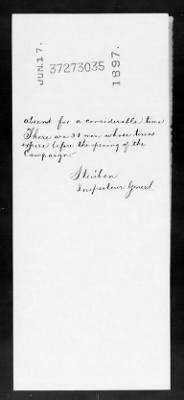 JUN. 17.
37273035
1897.
absent for a considerable time
There are 38 men whose times
expire before the opening of the
Campaign.
Steuben
Inspecteur General